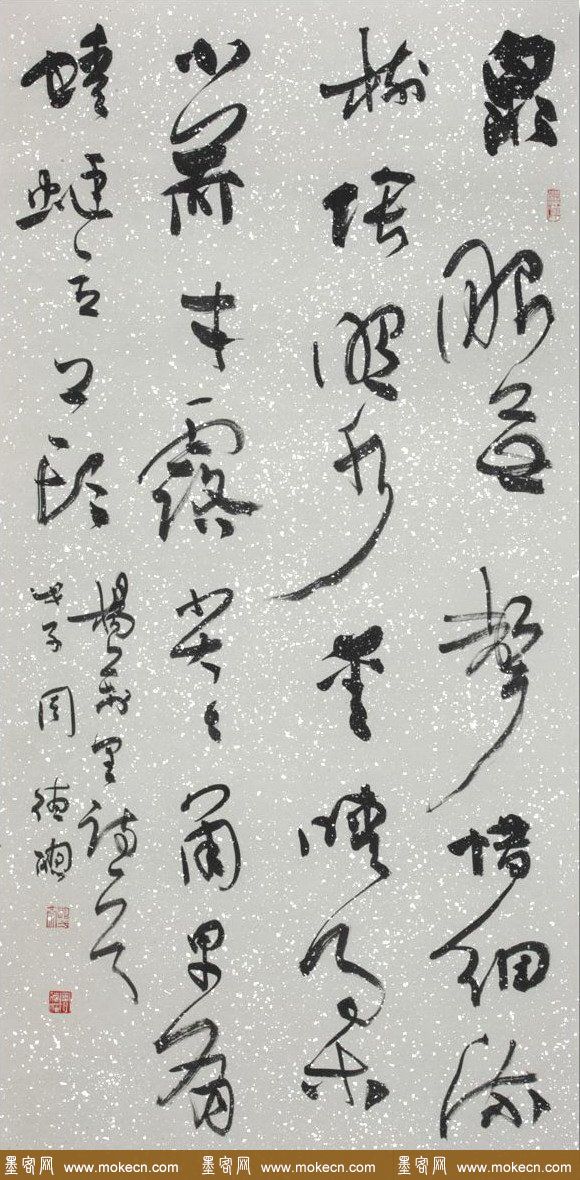 泉眼无聲惜细流
樹陰照水愛晴柔
小荷才露尖々角早有
蜻蜓立上頭
楊萬里詩一首
戊子周德
墨客网 www.mokecn.com 墨客网 www.mokecn.com 墨客网 www.mokecn.com